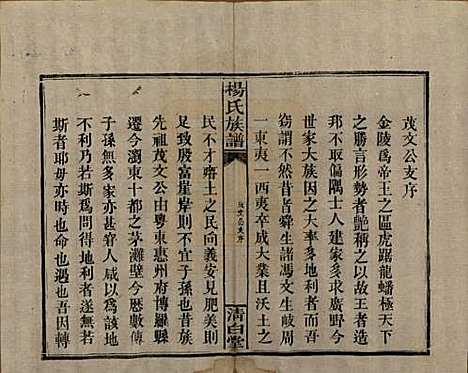 茂文公支序
金陵爲帝王之區虎踞龍蟠極天下
之勝言形勢者艷稱之以故王者造
邦不取偏隅士人建家多求廣野今
世家大族因之大率多地利焉予
竊謂不然昔者舜生諸馮文生岐周
一東夷一西夷卒成大業且沃土之
楊氏族譜
茂文公支序
清白堂
民不才瘠土之民向義安見肥美則
足致殷富崖岸則不宜子孫也昔族
先祖茂文公由粤東惠州府博羅縣
遷今瀏東十都之茅灘壁今歷數傳
子孫無多家亦甚窘人咸以爲該地
不利乃若斯爲問得地利者遂無若
斯者耶毋亦時也命也遇也吾因轉